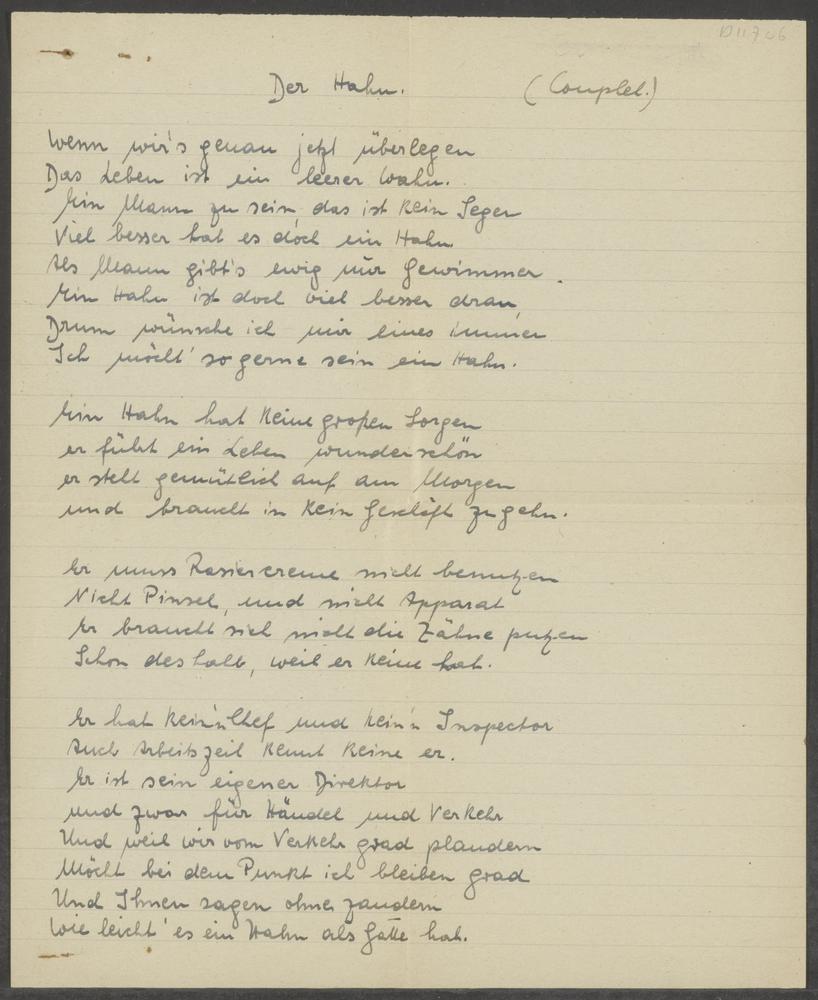 D11706
Der Hahn. (Couplet.)
Wenn wir's genau jetzt überlegen
Das Leben ist ein leerer Wahn.
Ein Mann zu sein, das ist kein Segen
Viel besser hat es doch ein Hahn
Als Mann gibt's ewig nur Gewimmer.
Ein Hahn ist doch viel besser dran,
Drum wünsche ich mir eines immer
Ich möcht' so gerne sein ein Hahn.
Ein Hahn hat keine großen Sorgen
er führt ein Leben wunderschön
er steht gemütlich auf am Morgen
und braucht in kein Geschäft zu gehn.
Er muss Rasiercreme nicht benutzen
Nicht Pinsel, und nicht Apparat
Er braucht sich nicht die Zähne putzen
Schon deshalb, weil er keine hat.
Er hat kein'n Chef und kein'n Inspector
Auch Arbeitszeit kennt keine er.
Er ist sein eigener Direktor
und zwar für Händel und Verkehr
Und weil wir vom Verkehr grad plaudern
Möcht bei dem Punkt ich bleiben grad
Und Ihnen sagen ohne zaudern
Wie leicht' es ein Hahn als Gatte hat.